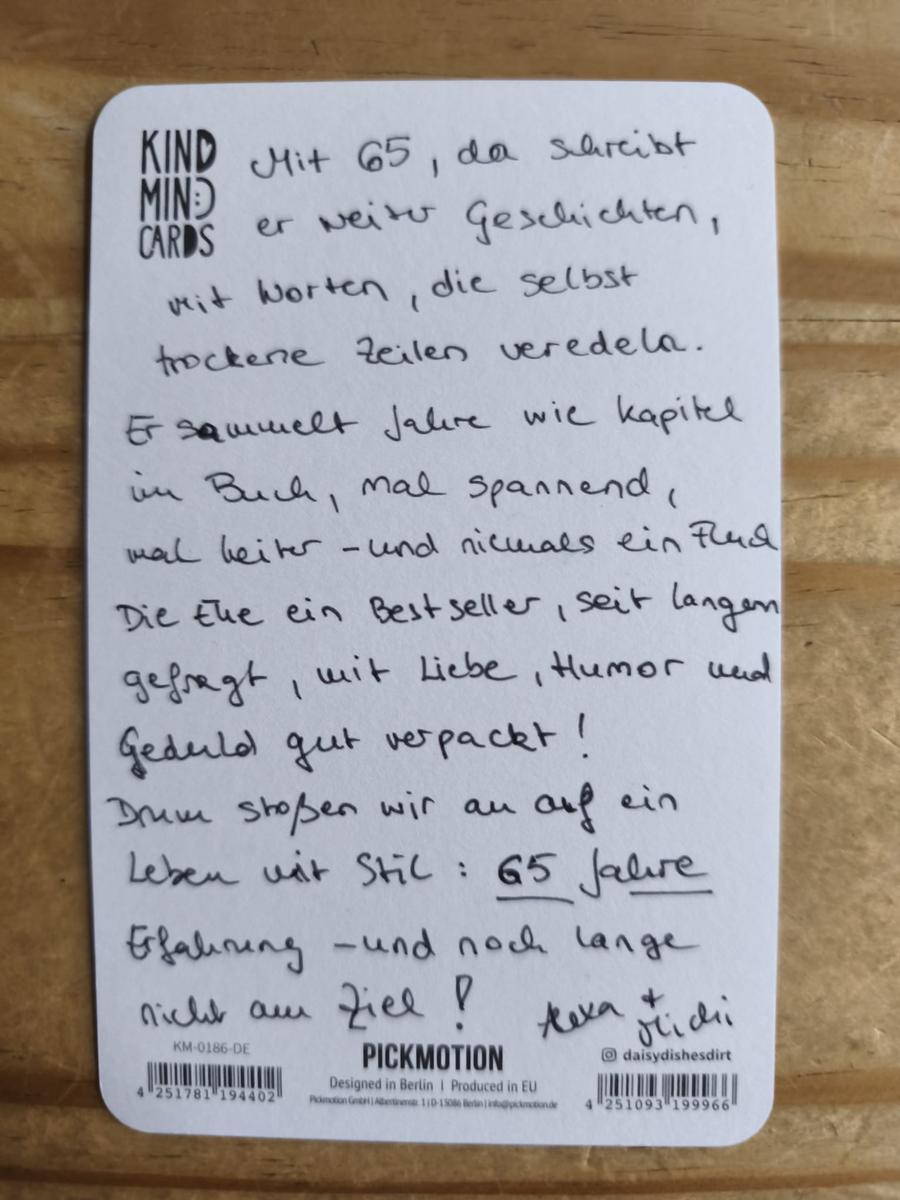 KIND
MIND
CARDS
Mit 65, da schreibt
er weiter Geschichten,
mit Worten, die selbst
trockene Zeilen veredeln.
Er sammelt Jahre wie Kapitel
im Buch, mal spannend,
mal heiter - und niemals ein Fluch
Die Ehe ein Bestseller, seit langem
gefragt, mit Liebe, Humor und
Geduld gut verpackt!
Drum stoßen wir an auf ein
Leben mit Stil: 65 Jahre
Erfahrung - und noch lange
nicht am Ziel!
Alexa + Michi
KM-0186-DE
4 251781 194402
PICKMOTION
Designed in Berlin | Produced in EU
Pickmotion GmbH | Albertinenstr. 1 | D-13086 Berlin | info@pickmotion.de
daisydishesdirt
4 251093 199966